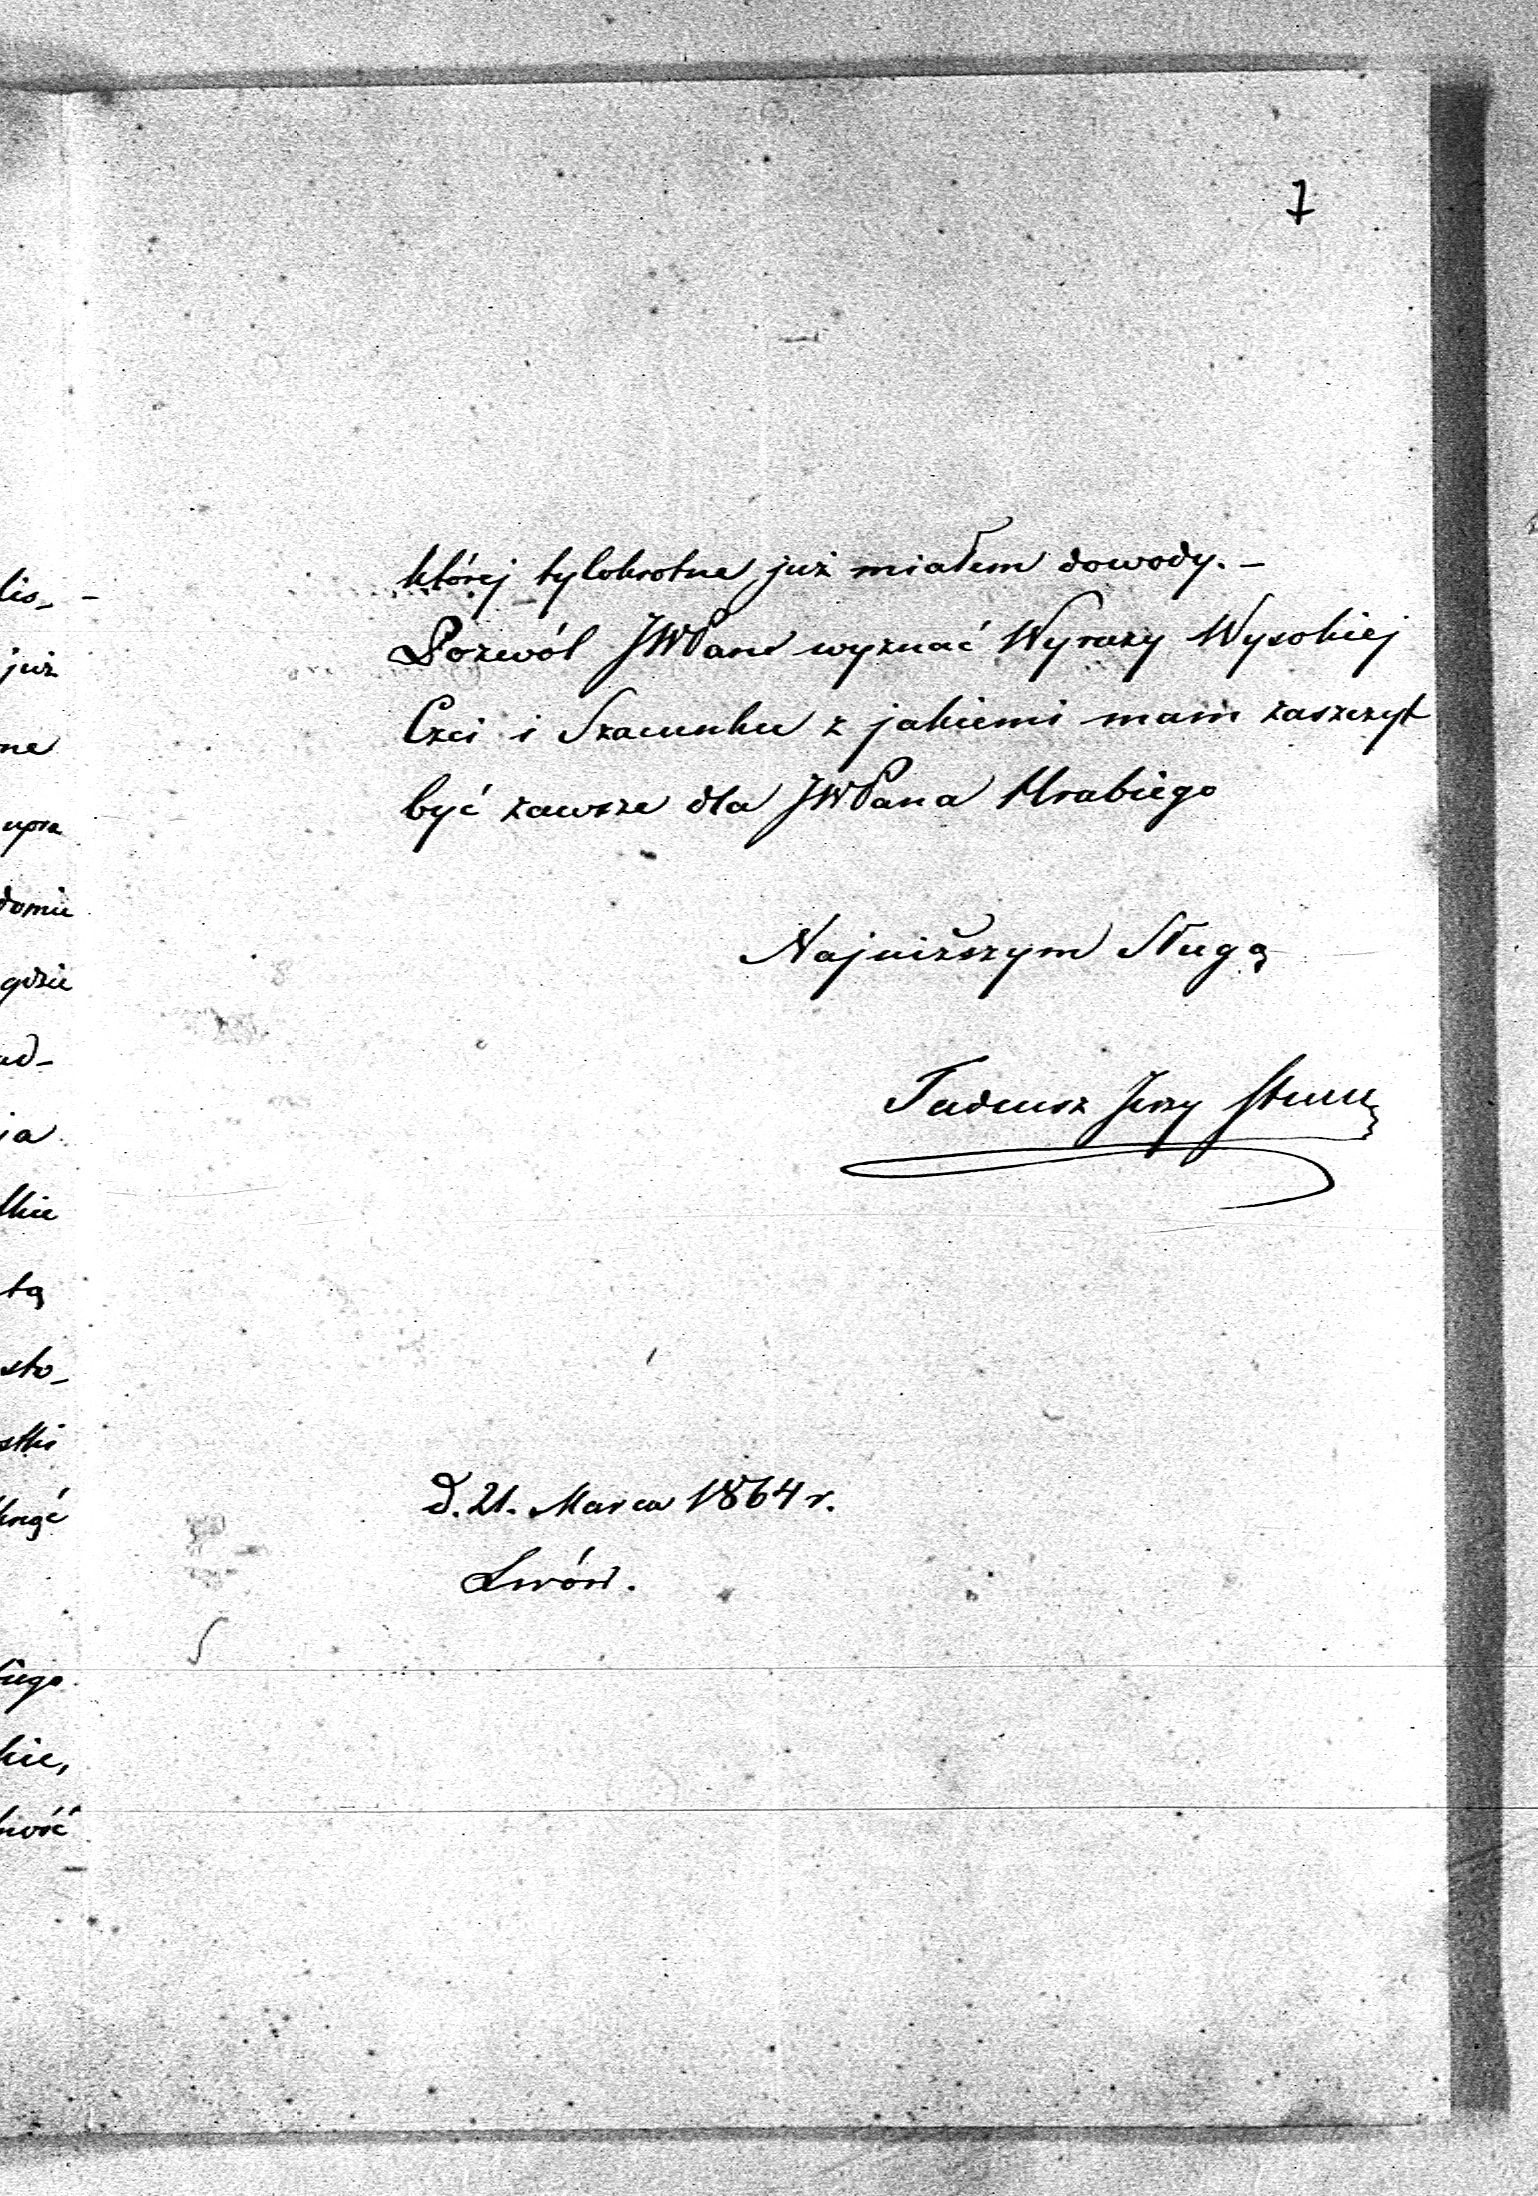 7
której tylokrotne już miałem dowody. –
Pozwól JWPanie wyznać Wyrazy Wysokiej
Czci i Szacunku z jakiemi mam zaszczyt
być zawsze dla JWPana Hrabiego
Najniższym Sługą
Tadeusz Jerzy
d. 21. Marca 1864 r.
Lwów.
lis, -
już
ne
domu
gdzie
ad-
ja
tą
sto-